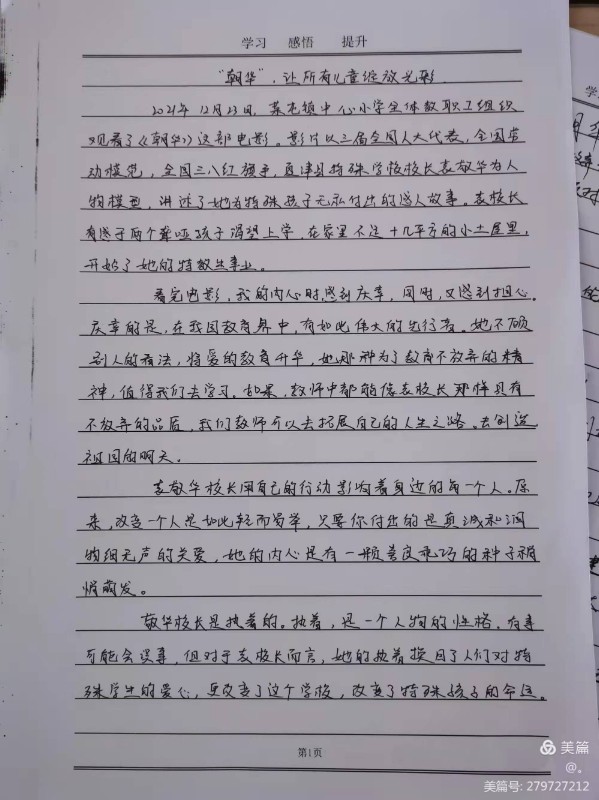 学习 感悟 提升
“朝华”，让所有儿童绽放光彩
2021年12月23日，某屯镇中心小学全体教职工组织
观看了《朝华》这部电影。影片以三届全国人大代表，全国劳
动模范，全国三八红旗手，西津县特殊学校校长袁敬华为人
物模型，讲述了她为特殊孩子无私付出的感人故事。袁校长
有感于两个聋哑孩子渴望上学，在家里不足十几平方的小土屋里，
开始了她的特教生事业。
看完电影，我的内心时感到庆幸，同时，又感到担心。
庆幸的是，在我国教育界中，有如此伟大的先行者。她不顾
别人的看法，将爱的教育升华，她那种为了教育不放弃的精
神，值得我们去学习。如果，教师中都能像袁校长那样具有
不放弃的品质，我们教师可以去拓展自己的人生之路。去创造
祖国的明天。
袁敬华校长用自己的行动影响着身边的每一个人。原
来，改变一个人是如此轻而易举，只要你付出的是真诚和润
物细无声的关爱，她的内心是有一颗善良乖巧的种子稍
悄萌发。
敬华校长是执着的。执着，是一个人物的性格，有事
可能会误事，但对于袁校长而言，她的执着换回了人们对特
殊学生的爱心，更改变了这个学校，改变了特殊孩子的命运。
第1页
美篇
@。
美篇号: 279727212